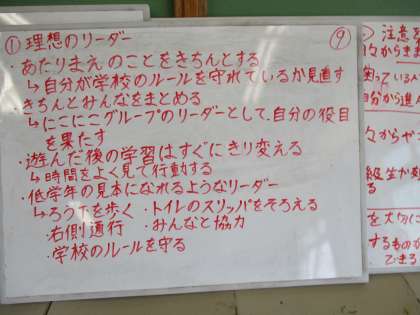 ① 理想のリーダー
⑨
・あたりまえのことをきちんとする
↳自分が学校のルールを守れているか見直す
きちんとみんなをまとめる
↳にこにこグループのリーダーとして、自分の役目
を果たす
・遊んだ後の学習はすぐにきり変える
↳時間をよく見て行動する
・低学年の見本になれるようなリーダー
↳ろうかを歩く ・トイレのスリッパをそろえる
右側通行 ・みんなと協力
・学校のルールを守る
注意を
自分から進ん
を大切に
するものが
できる